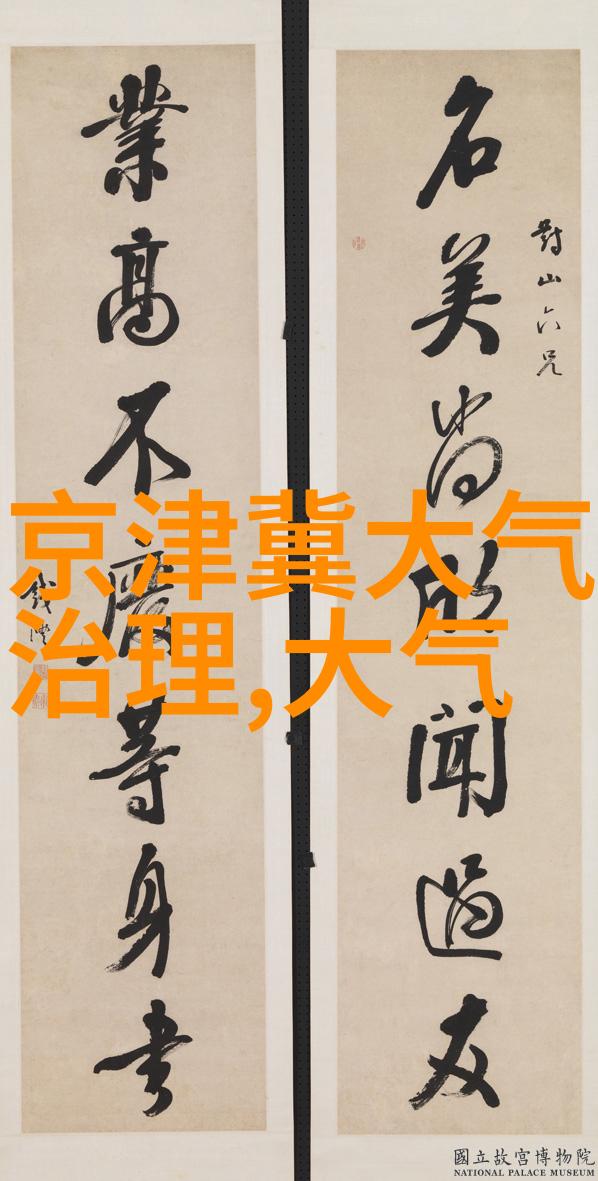 京津冀大气
治理,大气
對山六兄
名美尚欣聞過友
業高不廢等身書
錢灃
國立故宮博物院
NATIONAL PALACE MUSEUM